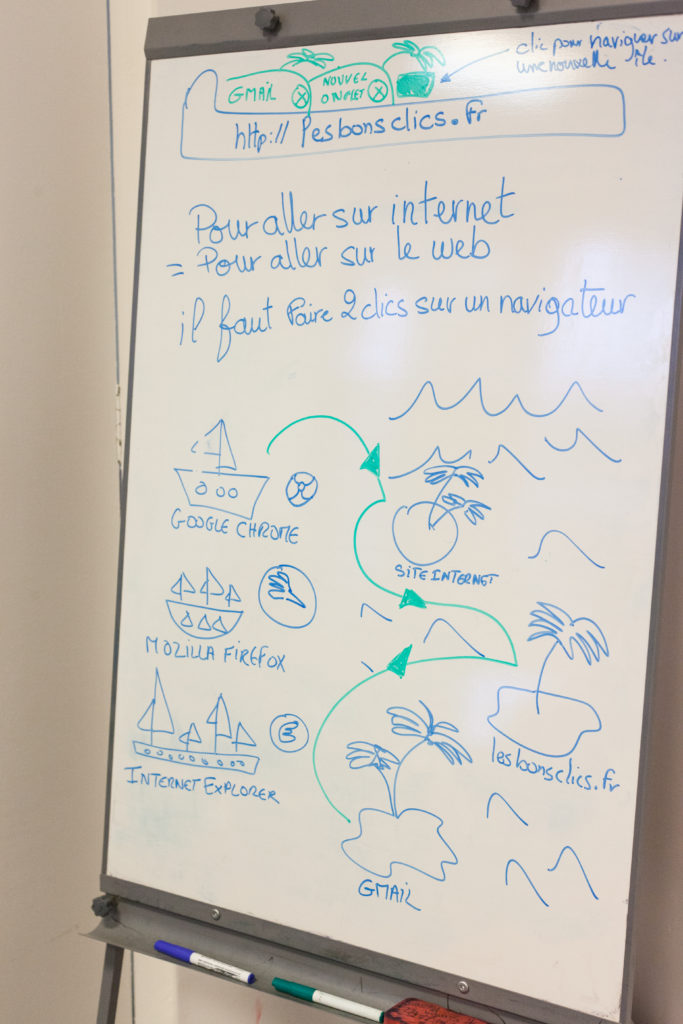 clic pour naviguer sur
une nouvelle île.
GMAIL
NOUVEL
ONGLET
http:// lesbonsclics.fr
Pour aller sur internet
= Pour aller sur le web
il faut faire 2 clics sur un navigateur
GOOGLE CHROME
SITE INTERNET
MOZILLA FIREFOX
lesbonsclics.fr
INTERNET EXPLORER
GMAIL